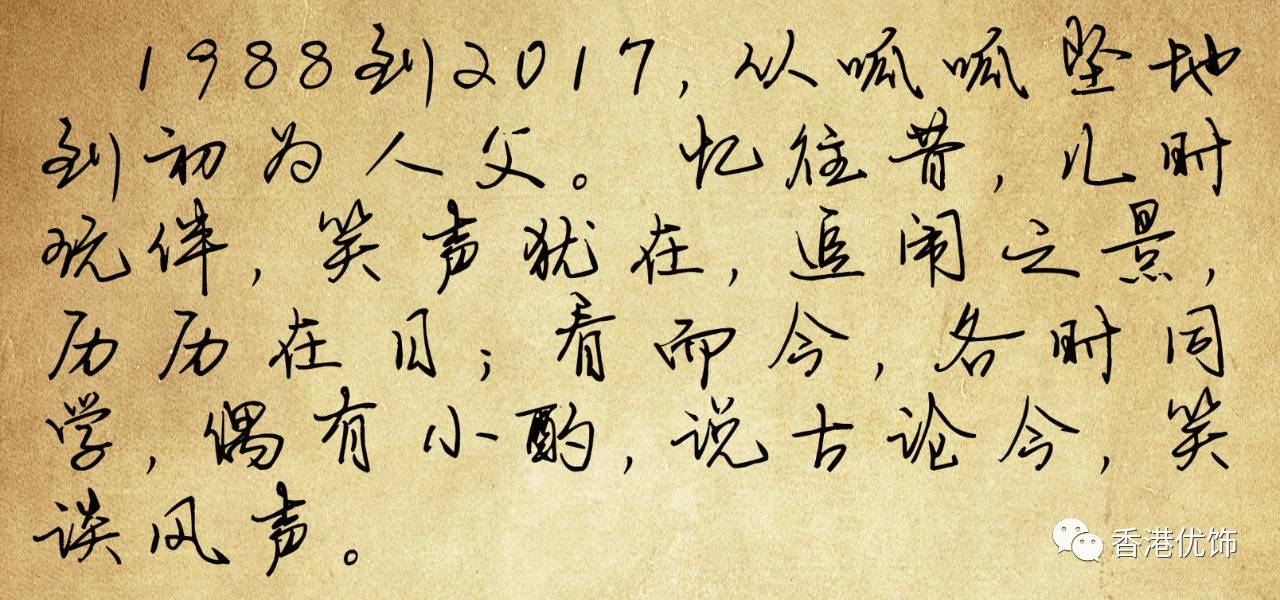 1988到2017,从呱呱坠地
到初为人父。忆往昔,儿时
玩伴,笑声犹在,追闹之景,
历历在目;看而今,各时同
学,偶有小酌,说古论今,笑
谈风声。
香港优饰